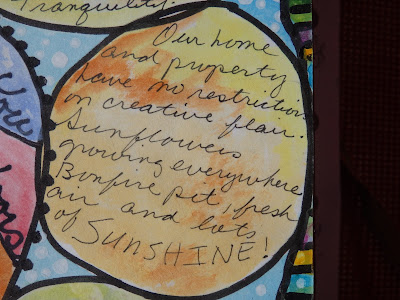 Tranquility.
Our home
and property
have no restrictions
on creative flair.
Sunflowers
growing everywhere
Bonfire pit, fresh
air and lots
of SUNSHINE!